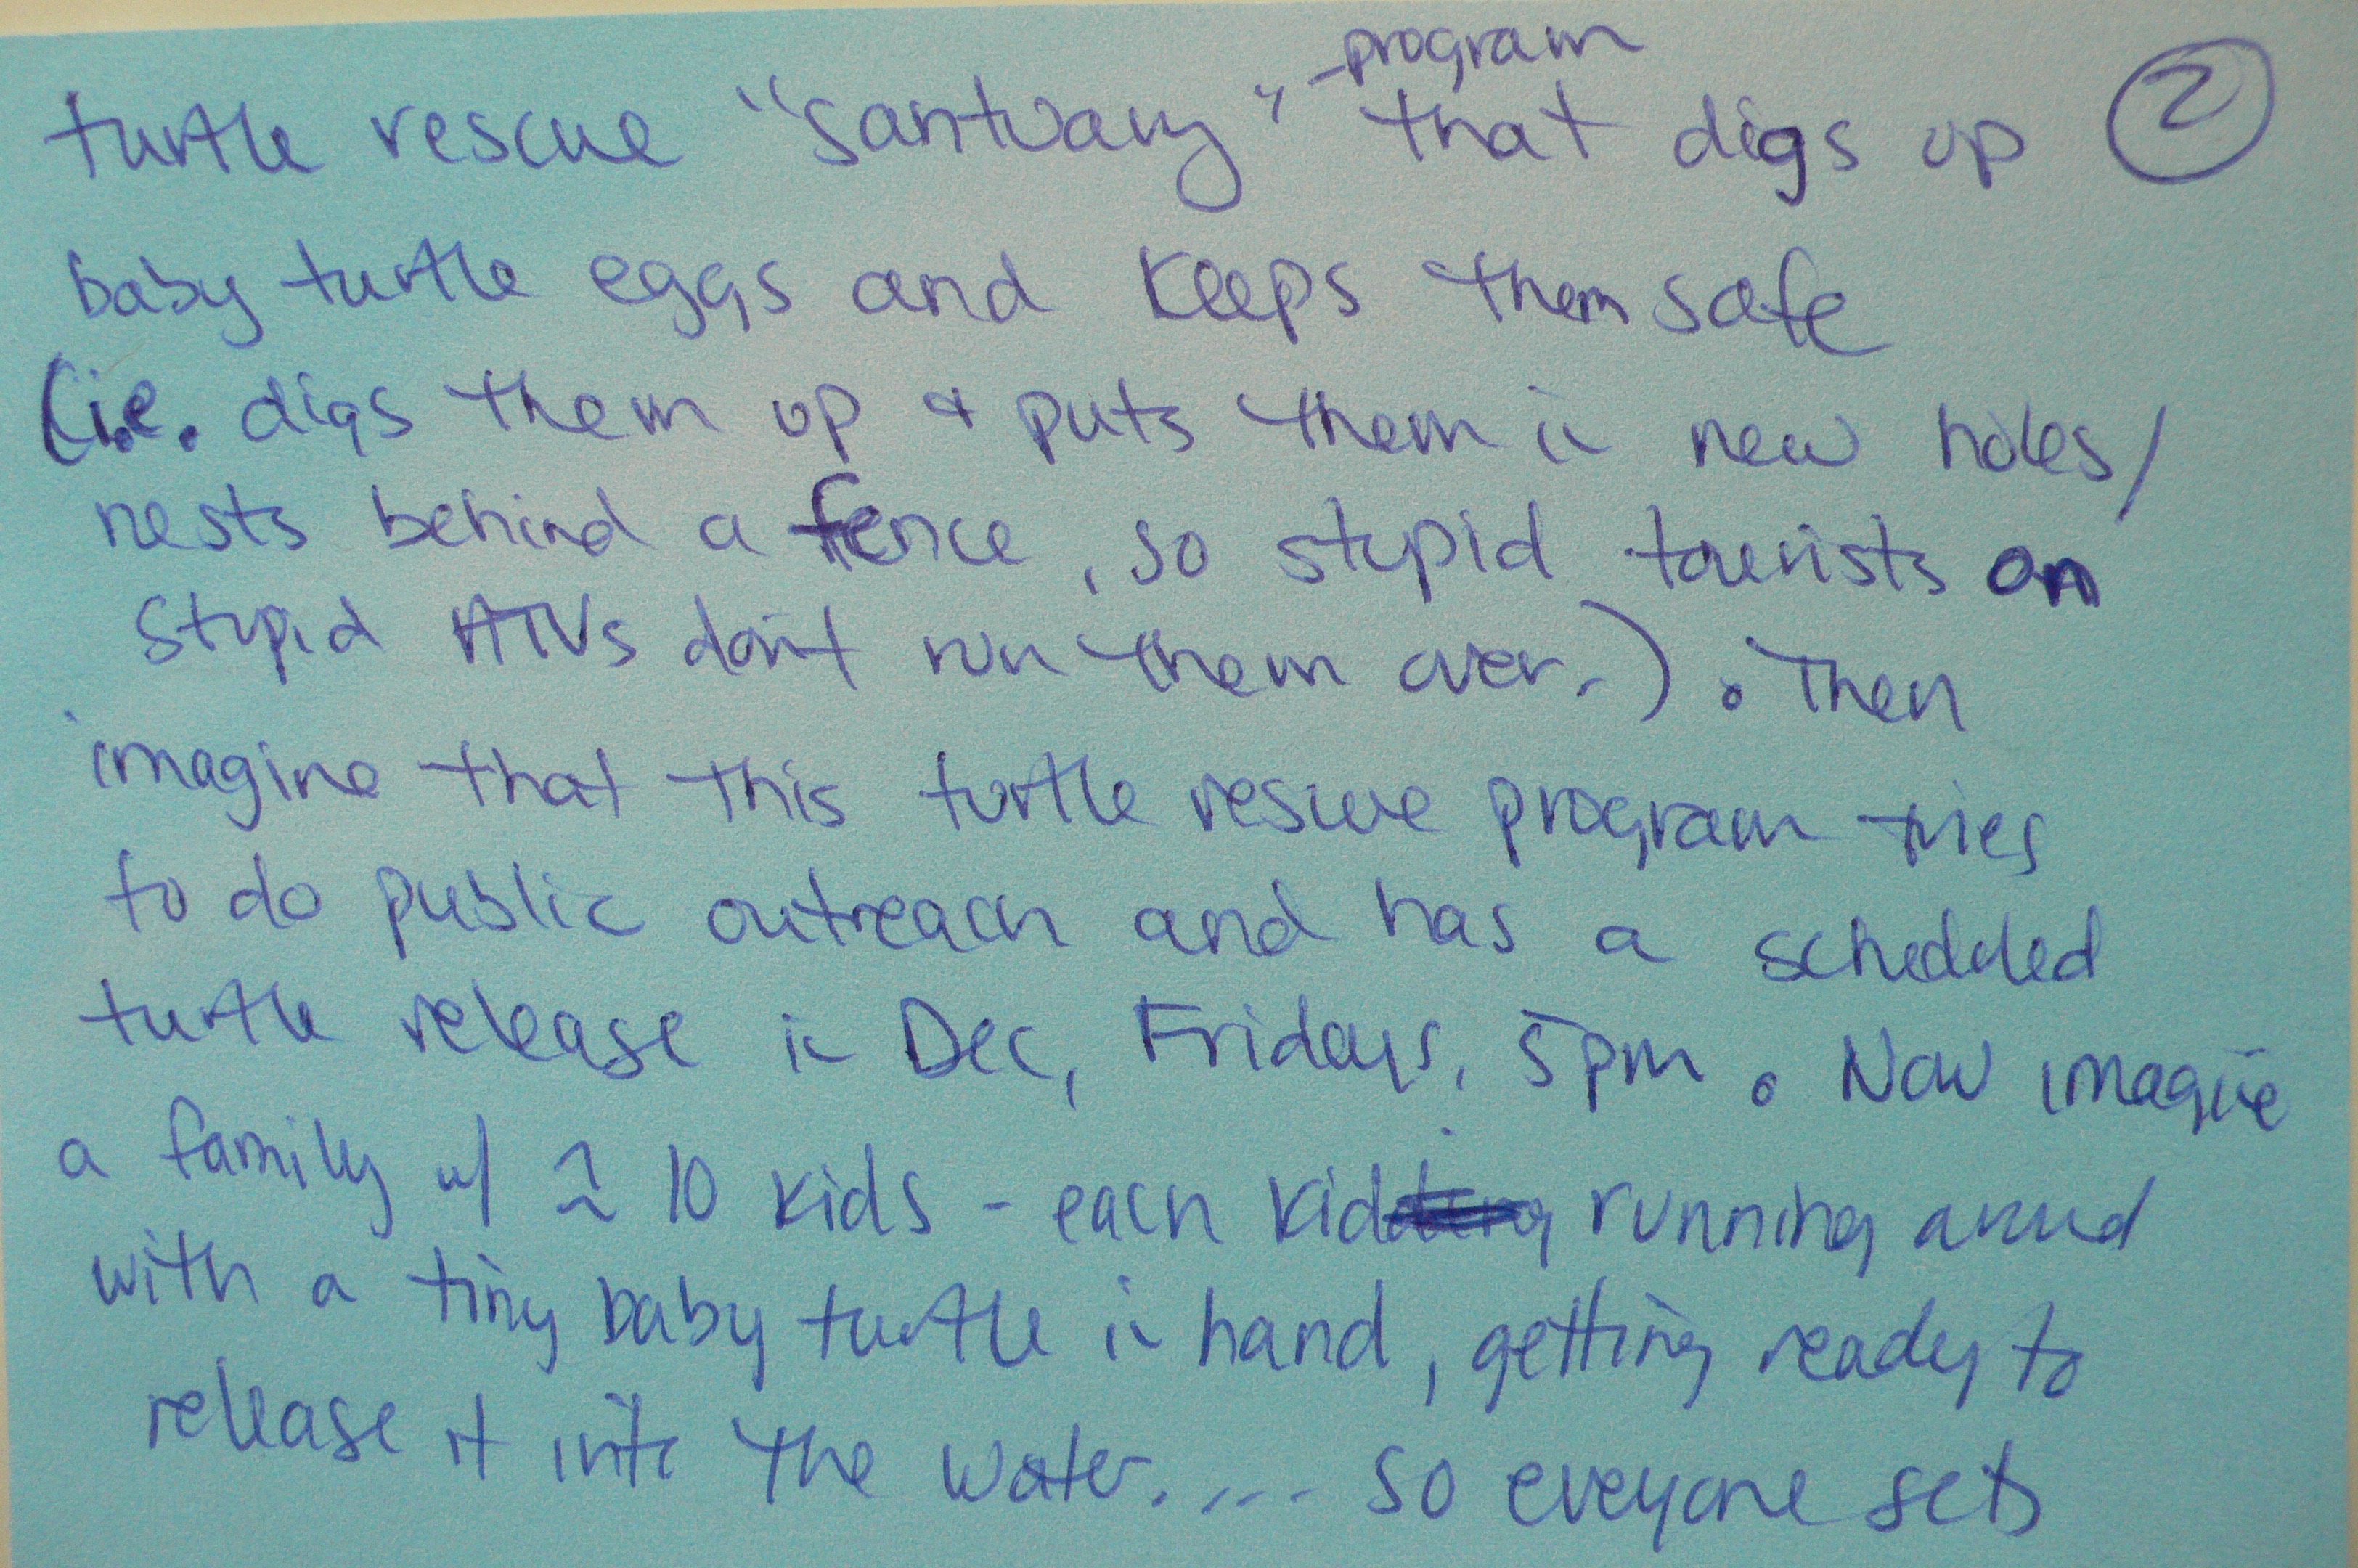 turtle rescue "santuary" -program that digs up ②
baby turtle eggs and keeps them safe
(i.e. digs them up + puts them in new holes/
nests behind a fence, so stupid tourists on
stupid ATVs don't run them over.). Then
imagine that this turtle rescue program tries
to do public outreach and has a scheduled
turtle release in Dec, Fridays, 5pm. Now imagine
a family w/ ≈ 10 kids - each kid running around
with a tiny baby turtle in hand, getting ready to
release it into the water.... so everyone sets